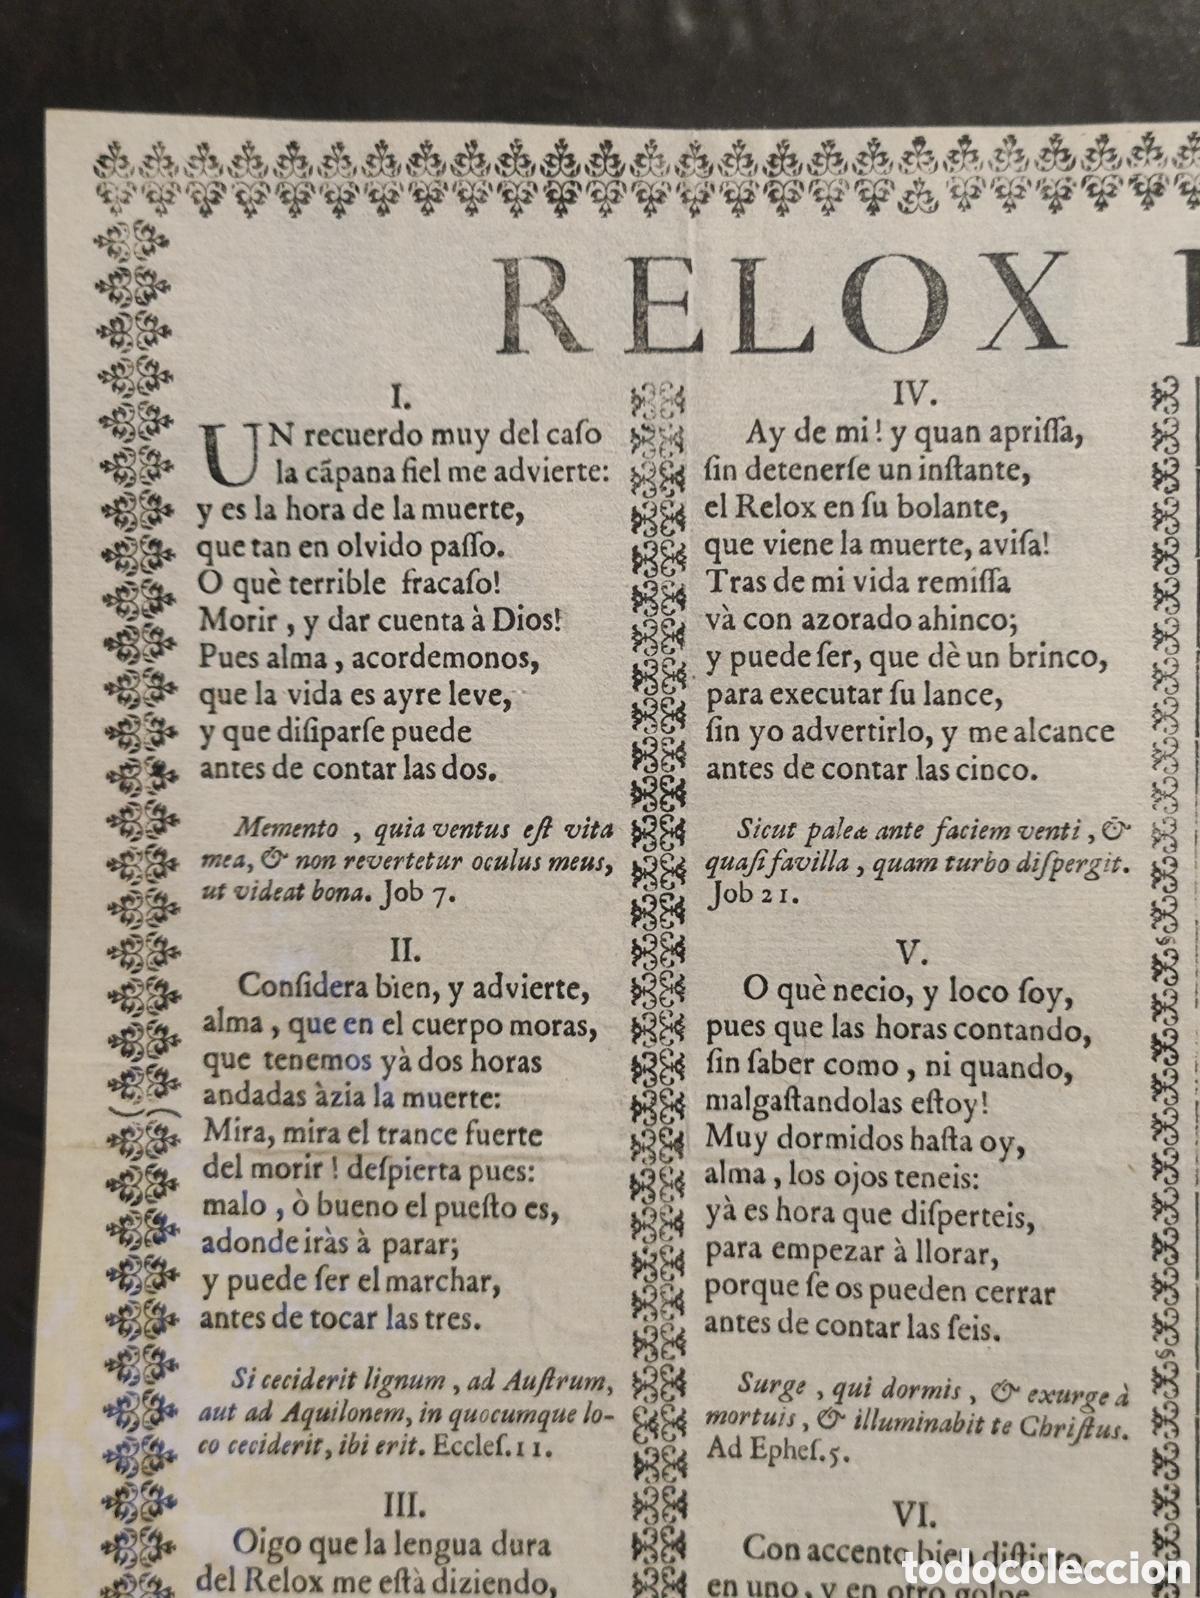 RELOX
I.
UN recuerdo muy del caſo
la cãpana fiel me advierte:
y es la hora de la muerte,
que tan en olvido paſſo.
O què terrible fracaſo!
Morir, y dar cuenta à Dios!
Pues alma, acordemonos,
que la vida es ayre leve,
y que diſiparſe puede
antes de contar las dos.
Memento, quia ventus eſt vita
mea, & non revertetur oculus meus,
ut videat bona. Job 7.
II.
Conſidera bien, y advierte,
alma, que en el cuerpo moras,
que tenemos yà dos horas
andadas àzia la muerte:
Mira, mira el trance fuerte
del morir! deſpierta pues:
malo, ò bueno el pueſto es,
adonde iràs à parar;
y puede ſer el marchar,
antes de tocar las tres.
Si ceciderit lignum, ad Auſtrum,
aut ad Aquilonem, in quocumque lo-
co ceciderit, ibi erit. Eccleſ. 11.
III.
Oigo que la lengua dura
del Relox me eſtà diziendo,
IV.
Ay de mi! y quan apriſſa,
ſin detenerſe un inſtante,
el Relox en ſu bolante,
que viene la muerte, aviſa!
Tras de mi vida remiſſa
và con azorado ahinco;
y puede ſer, que dè un brinco,
para executar ſu lance,
ſin yo advertirlo, y me alcance
antes de contar las cinco.
Sicut paleæ ante faciem venti, &
quaſi favilla, quam turbo diſpergit.
Job 21.
V.
O què necio, y loco ſoy,
pues que las horas contando,
ſin ſaber como, ni quando,
malgaſtandolas eſtoy!
Muy dormidos haſta oy,
alma, los ojos teneis:
yà es hora que diſperteis,
para empezar à llorar,
porque ſe os pueden cerrar
antes de contar las ſeis.
Surge, qui dormis, & exurge à
mortuis, & illuminabit te Chriſtus.
Ad Epheſ. 5.
VI.
Con accento bien diſtinto
en uno, y en otro golpe
todocoleccion